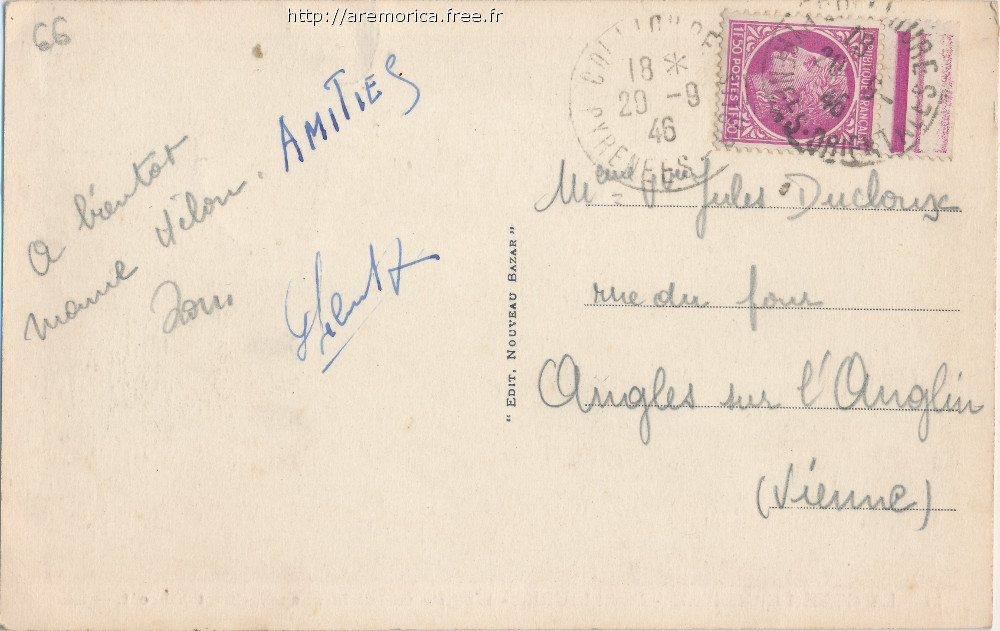 http://aremorica.free.fr
66
A bientot
mame Hélon.
AMITIES
COLLIOURE
18 *
20 -9
46
PYRENEES
1F50 POSTES 1F50
REPUBLIQUE FRANCAISE
Jules Ducloux
rue du four
Angles sur l'Anglin
(Vienne)
" EDIT. NOUVEAU BAZAR "